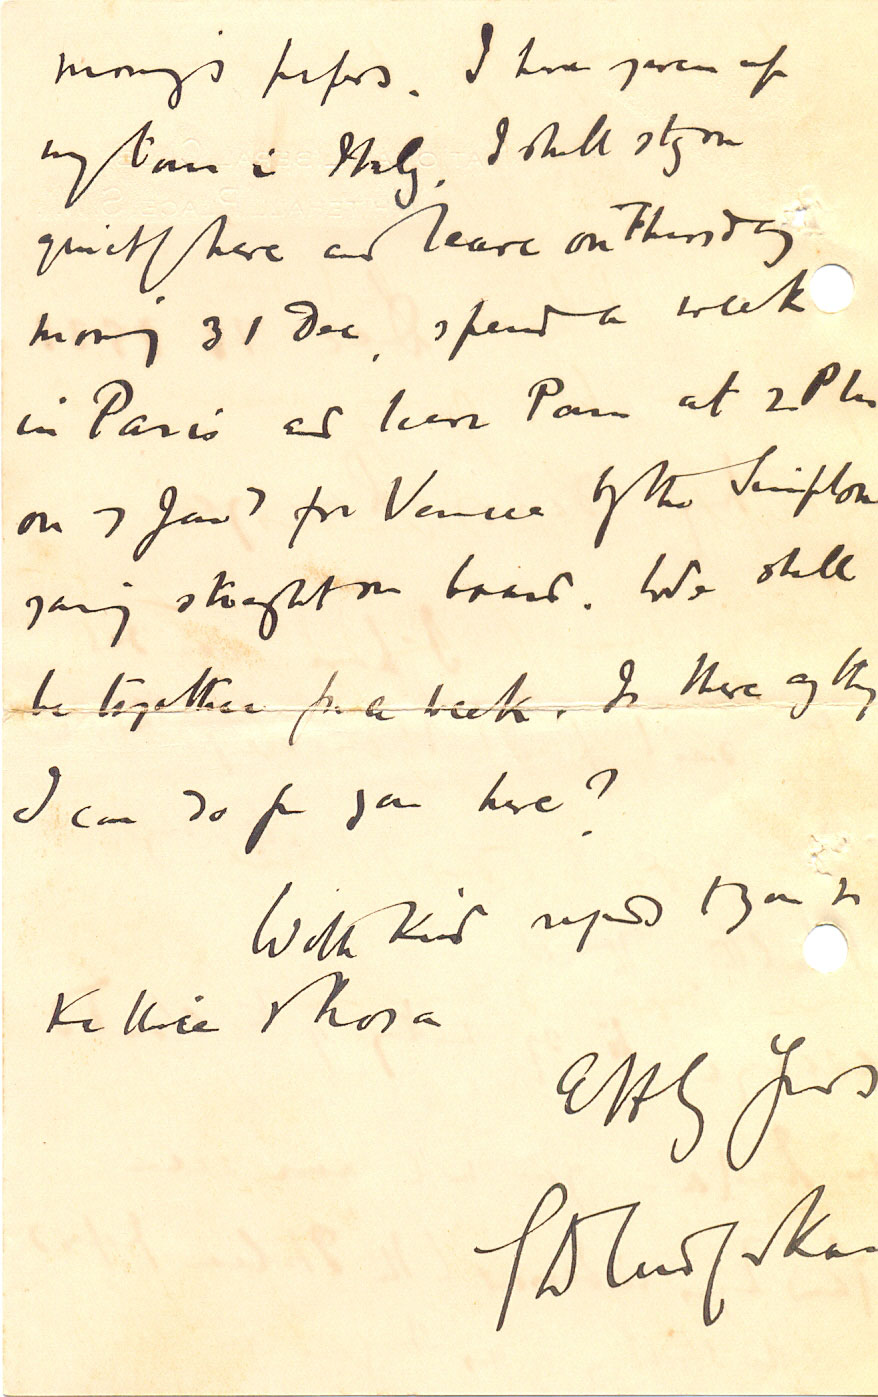 morning's papers. I have given up
my tour in Italy. I shall stay on
quietly here and leave on Thursday
morning 31 Dec, spend a week
in Paris and leave Paris at 2 P m
on 7 Jan^y for Venice by the Simplon
going straight on board. We shall
be together for a week. Is there anything
I can do for you here?
With kind regards to you &
Kathie & Rosa
Yours